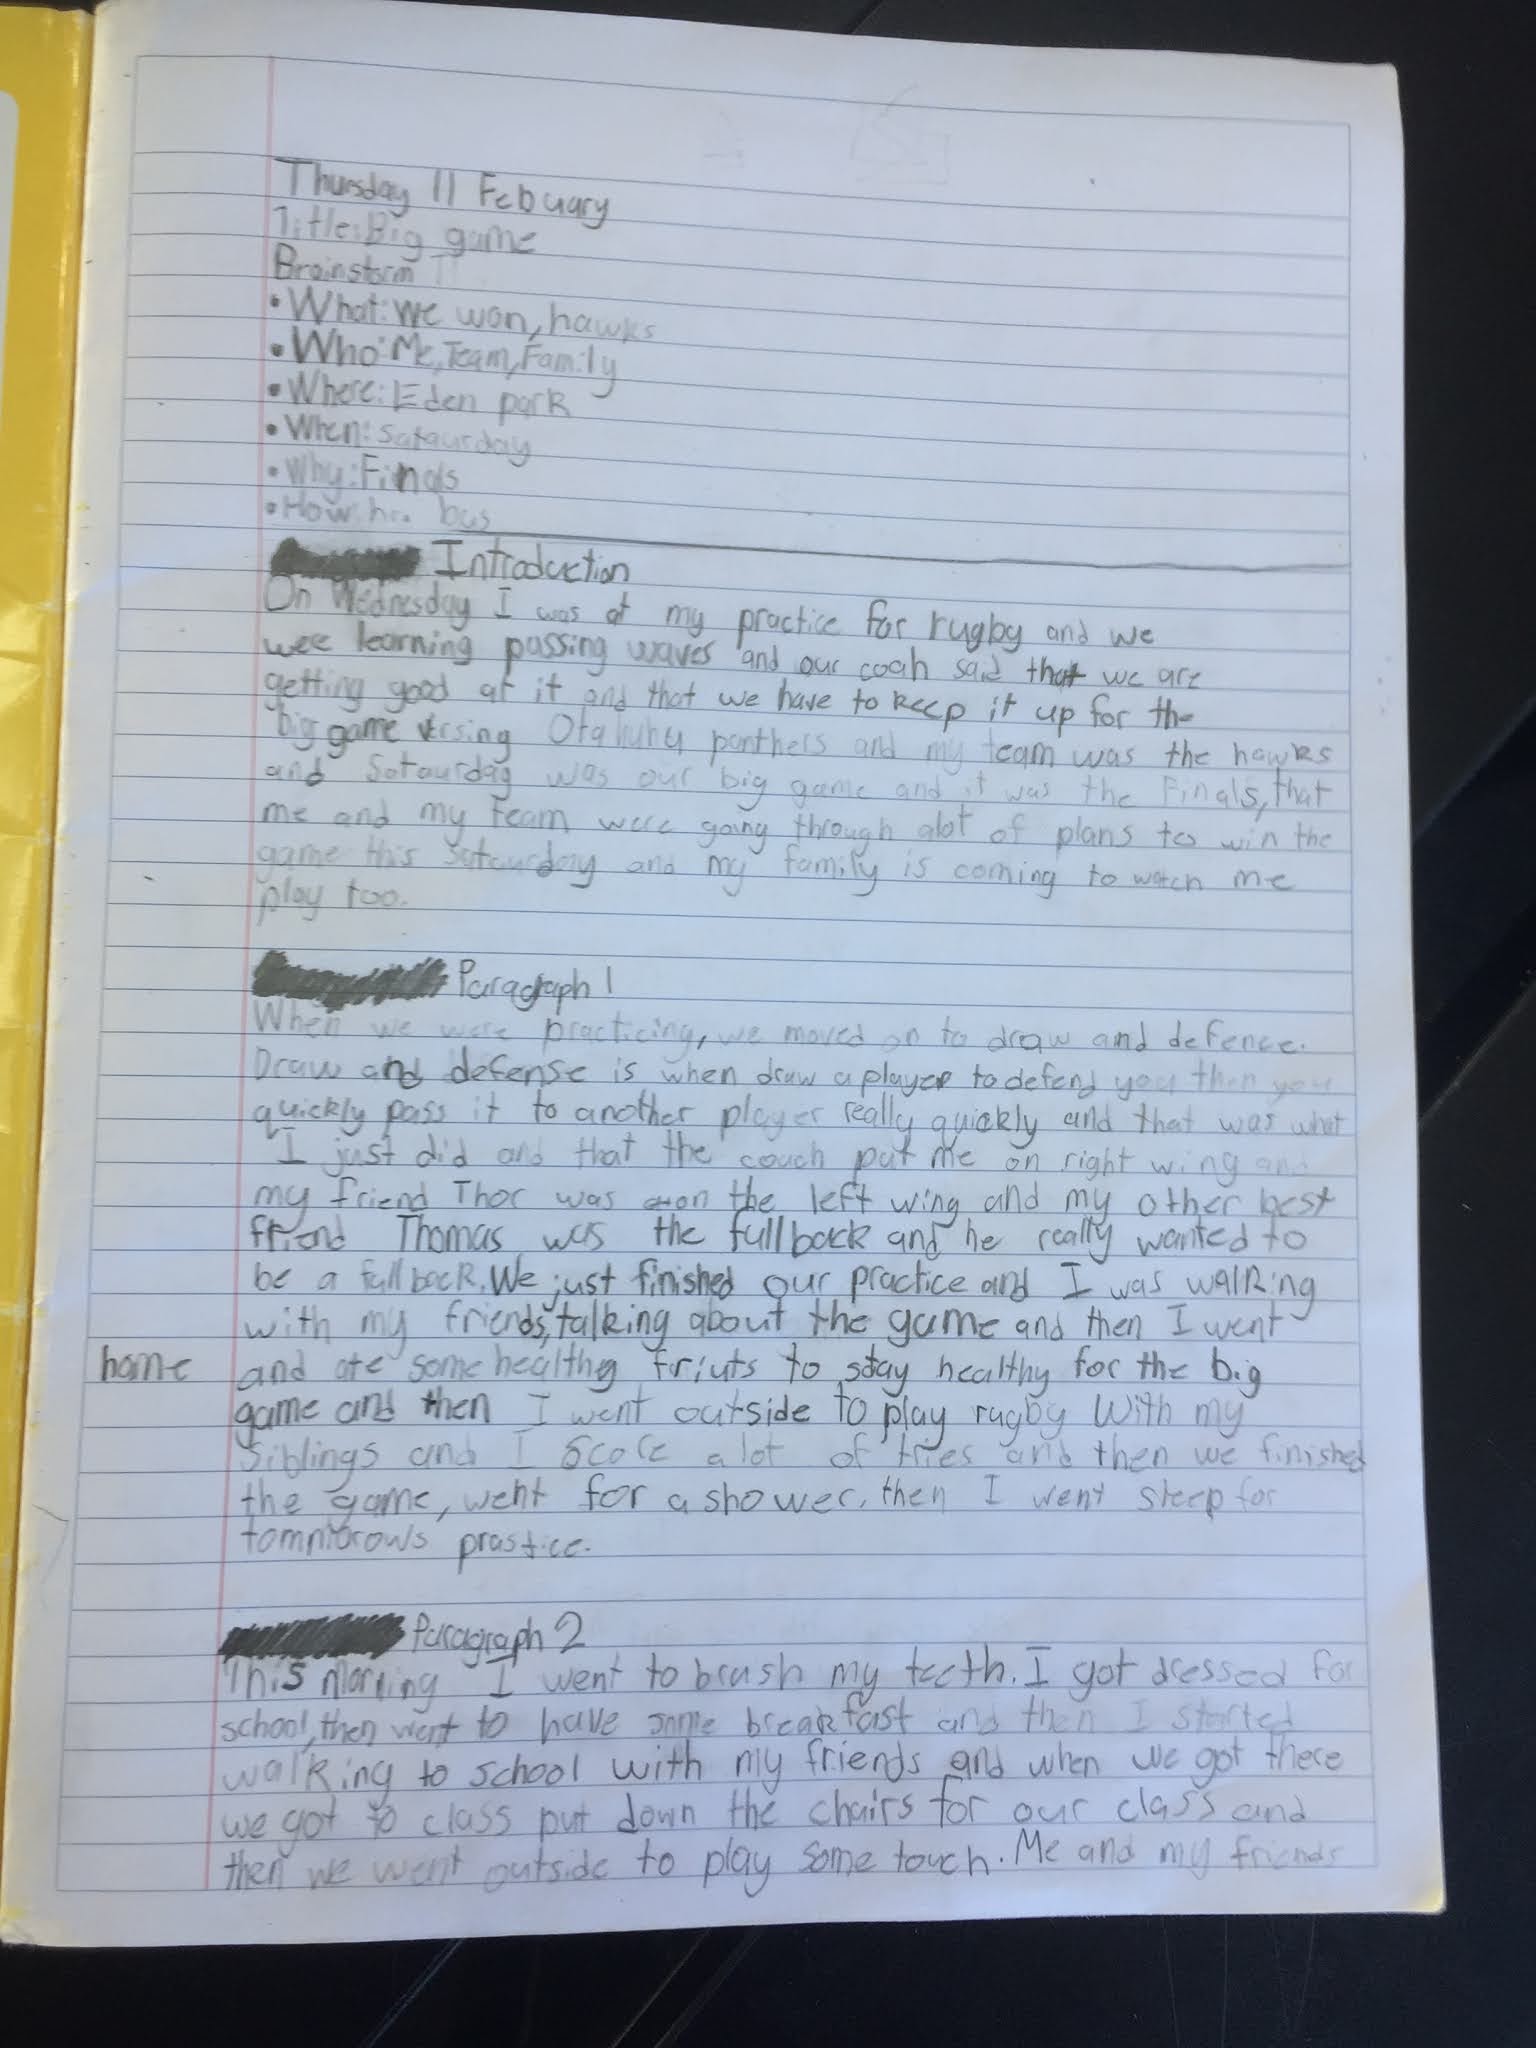 Thursday 11 Febuary
Title: Big game
Brainstorm
• What: We won, hawks
• Who: Me, Team, Family
• Where: Eden park
• When: Sataurday
• Why: Finals
• How: bus
Introduction
On Wednesday I was at my practice for rugby and we
wee learning passing waves and our coah said that we are
getting good at it and that we have to keep it up for the
big game vrsing Otahuhu panthers and my team was the hawks
and Sataurday was our big game and it was the Finals, that
me and my team were going through alot of plans to win the
game this Sataurday and my family is coming to watch me
play too.
Paragraph 1
When we were practicing, we moved on to draw and defence.
Draw and defense is when draw a player to defend you then you
quickly pass it to another player really quickly and that was what
I just did and that the couch put me on right wing and
my friend Thor was on the left wing and my other best
friend Thomas was the fullback and he really wanted to
be a fullback. We just finished our practice and I was walking
with my friends, talking about the game and then I went
home and ate some healthy friuts to stay healthy for the big
game and then I went outside to play rugby With my
siblings and I score alot of tries and then we finished
the game, went for a shower, then I went sleep for
prastice.
Paragraph 2
This Morning I went to brush my teeth. I got dressed for
school, then went to have some breakfast and then I started
walking to school with my friends and when we got there
we got to class put down the chairs for our class and
then we went outside to play some touch. Me and my friends